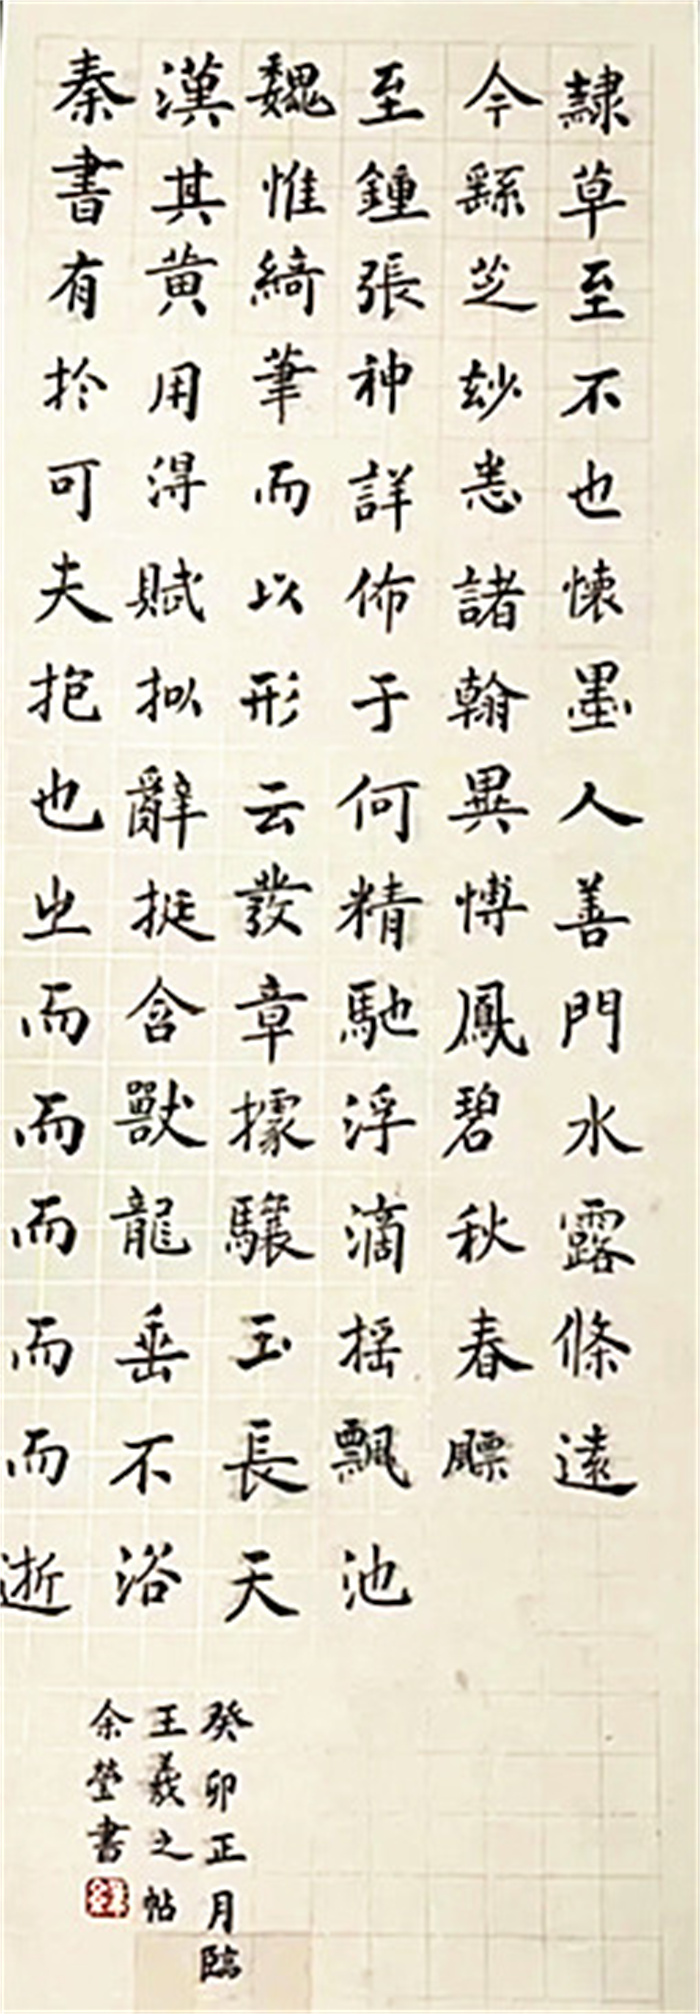 秦漢魏至今隷
書其惟鍾繇草
有黄綺張芝至
扵用筆神玅不
可得而詳悉也
夫賦以佈諸懷
抱拟形于翰墨
也辭云何異人
㞢挺發精博善
而含章馳鳳門
而獸據浮碧水
而龍驤滴秋露
而垂玉摇春條
而不長飄飃遠
逝浴天池
癸卯正月臨
王羲之帖
余瑩書